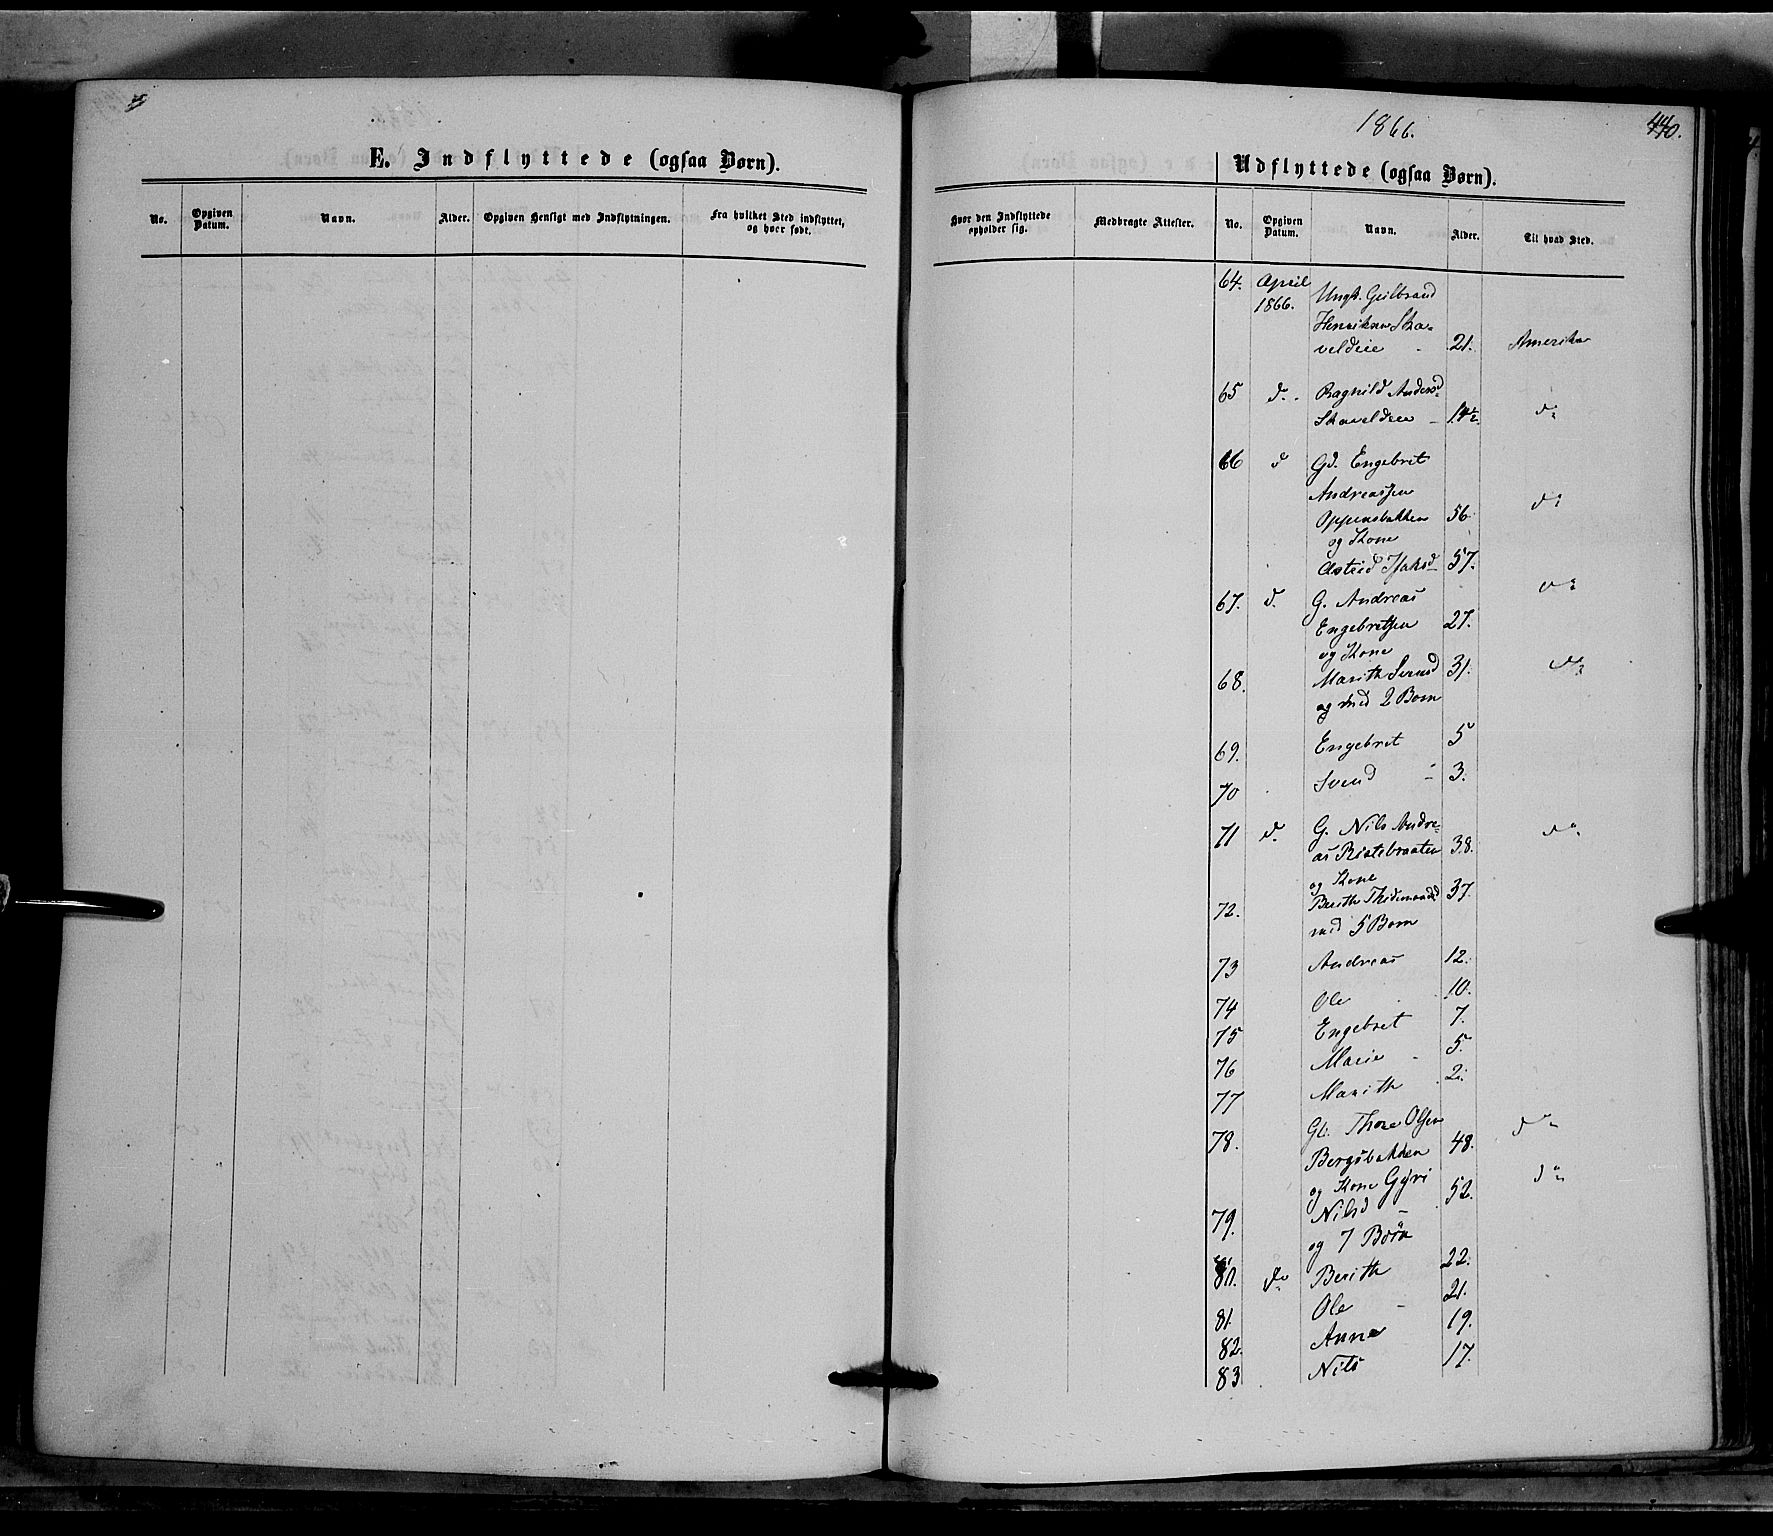 1866.
440.
E. Indflyttede (ogsaa Børn).
Udflyttede (ogsaa Børn).
No. Opgiven Datum. Navn. Alder. Opgiven Hensigt med Indflytningen. Fra hvilket Sted indflyttet, og hvor født.
Hvor den Indflyttede opholder sig. Medbragte Attester. No. Opgiven Datum. Navn. Alder. Til hvad Sted.
64. April Ungk. Gulbrand
1866. Henriksen Ska-
veldeie 21. Amerika
65 do. Ragnild Andersd
Skaveldeie 14½ do
66 do Gd. Engebret
Andreassen
Oppensbakken 56 do
og Kone
Astrid Isaksd 57.
67. do. G. Andreas do
Engebretsen 27.
og Kone
68. Marith Svensd 31. do
og med 2 Børn
69. Engebret 5
70 Svend 3.
71 do G. Nils Andre-
as Ristebraaten 38. do
og Kone
72. Berith Thidemandsd 37.
med 5 Børn
73 Andreas 12.
74 Ole 10.
75 Engebret 7.
76 Marie 5.
77 Marith 2.
78. G. Thore Olsen do
Bergsbakken 48.
og Kone Gyri do
79. Nilsd 52.
og 7 Børn
80. do Berith 22.
81. Ole 21.
82. Anne 19.
83 Nils 17.